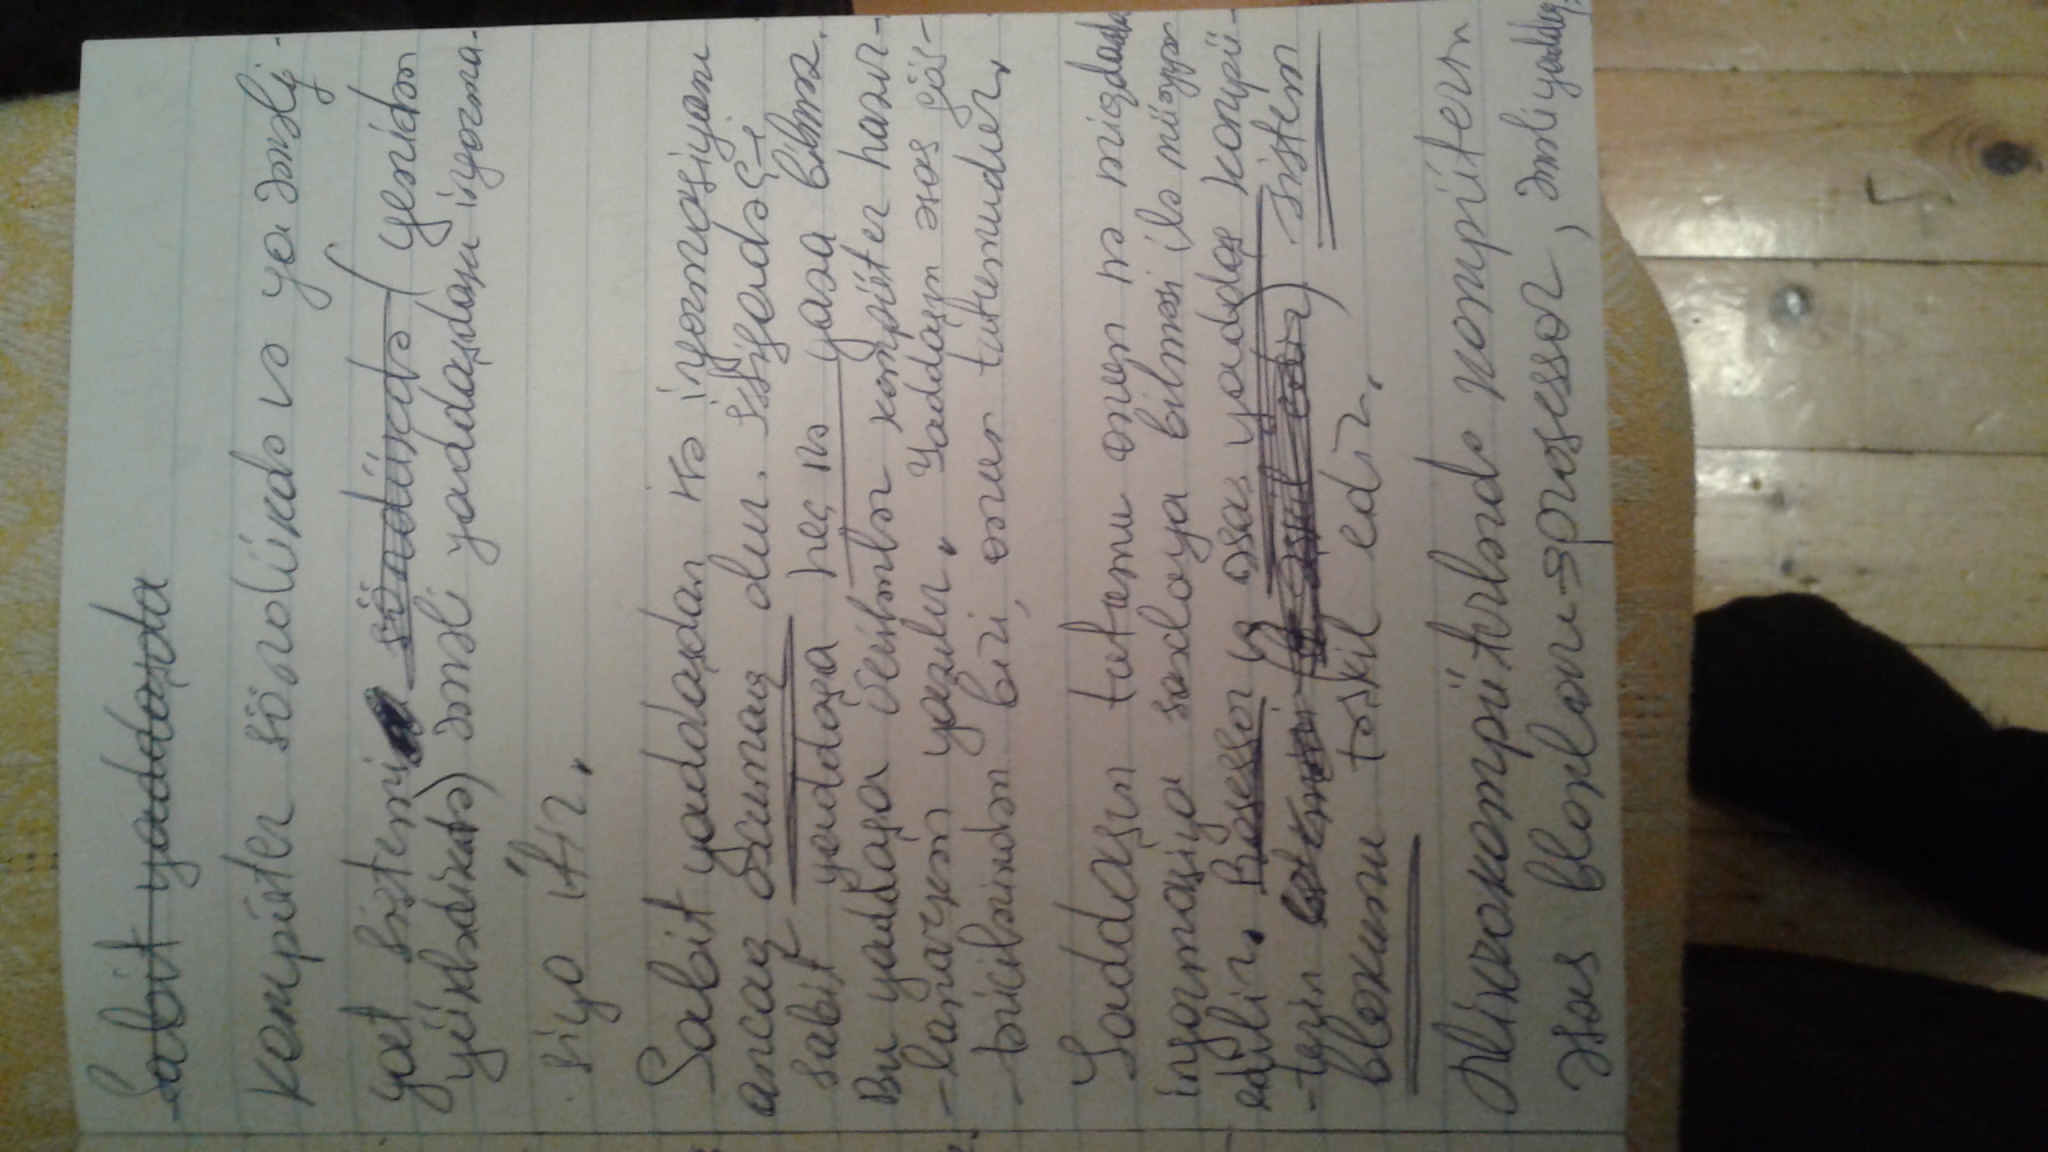 Sabit yaddaşda
Kompüter söndükdə və ya əməliy-
yat sistemi söndükdə (yenidən
yüklədikdə) əməli yaddaşdakı informa-
siya itir.
Sabit yaddaşdan isə informasiyanı
ancaq oxumaq olur. İstifadəçi
sabit yaddaşa heç nə yaza bilməz.
Bu yaddaşa verilənlər kompüter hazır-
-lanarkən yazılır. Yaddaşın əsas gös-
-təricilərindən biri, onun tutumudur.
Yaddaşın tutumu onun nə miqdarda
informasiya saxlaya bilməsi ilə müəyyən
edilir. Prosessor və əsas yaddaş kompü-
-terin təşkil edir) sistem
blokunu təşkil edir.
Mikrokompüterlərdə kompüterin
əsas blokları - prosessor, əməli yaddaş,